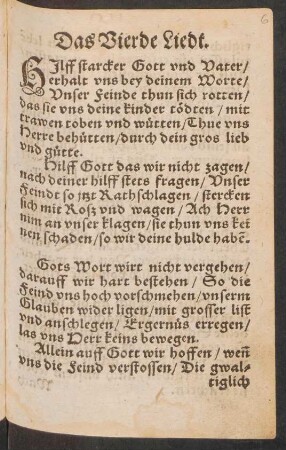 6
Das Vierde Liedt.
HIlff starcker Gott vnd Vater/
erhalt vns bey deinem Worte/
Vnser Feinde thun sich rotten/
das sie vns deine kinder tödten / mit
trawen toben vnd wütten/Thue vns
Herre behütten/durch dein gros lieb
vnd gütte.
Hilff Gott das wir nicht zagen/
nach deiner hilff stets fragen / Vnser
Feindt so jtzt Rathschlagen / stercken
sich mit Rosz vnd wagen / Ach Herr
nim an vnser klagen/sie thun vns kei
nen schaden/so wir deine hulde habē.
Gots Wort wirt nicht vergehen/
darauff wir hart bestehen / So die
Feind vns hoch vorschmehen/vnserm
Glauben wider ligen/mit grosser list
vnd anschlegen / Ergernüs erregen/
las vns Herr keins bewegen.
Allein auff Gott wir hoffen / weñ
vns die Feind verstossen / Die gwal-
tiglich